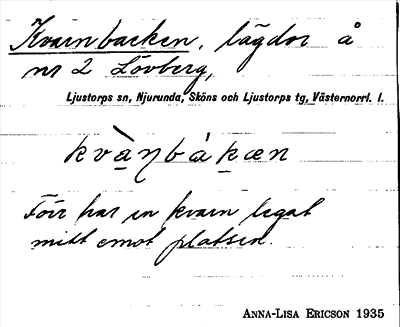 Kvarnbacken, lägdor å
nr 2 Lövberg,
Ljustorps sn, Njurunda, Sköns och Ljustorps tg, Västernorrl. l.
kvàṇbákæn
Förr har en kvarn legat
mitt emot platsen.
ANNA-LISA ERICSON 1935